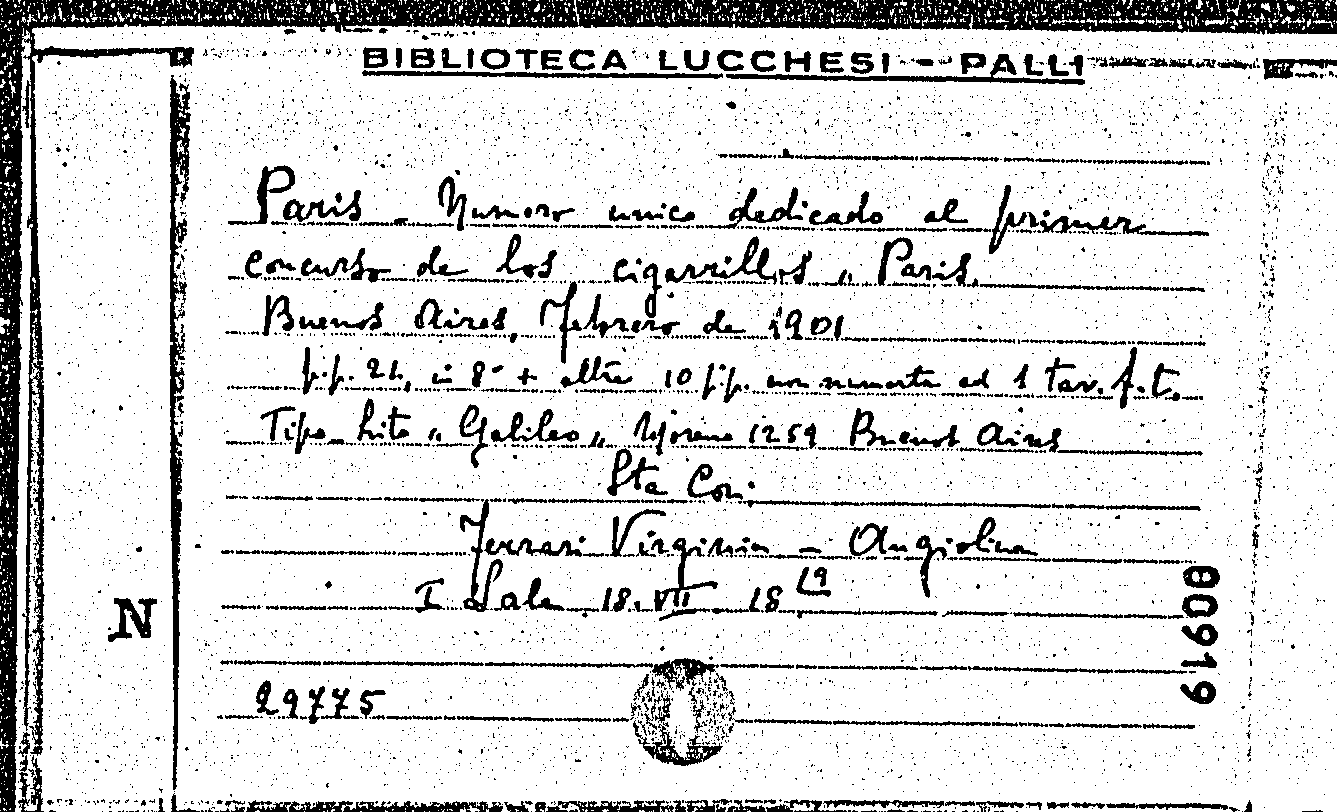 BIBLIOTECA LUCCHESI - PALLI
Paris - Numero unico dedicado al primer
concurso de los cigarrillos „ Paris.
Buenos Aires, Febrero de 1901
p.p. 24, in 8° + altre 10 p.p. non numerate ed 1 tav. f.t.
Tipo Lito „ Galileo „ Moreno 1259 Buenos Aires
Sta Con:
Ferrari Virginia - Angiolina
I Sala 18. VII. 18 19
N
000919
29775